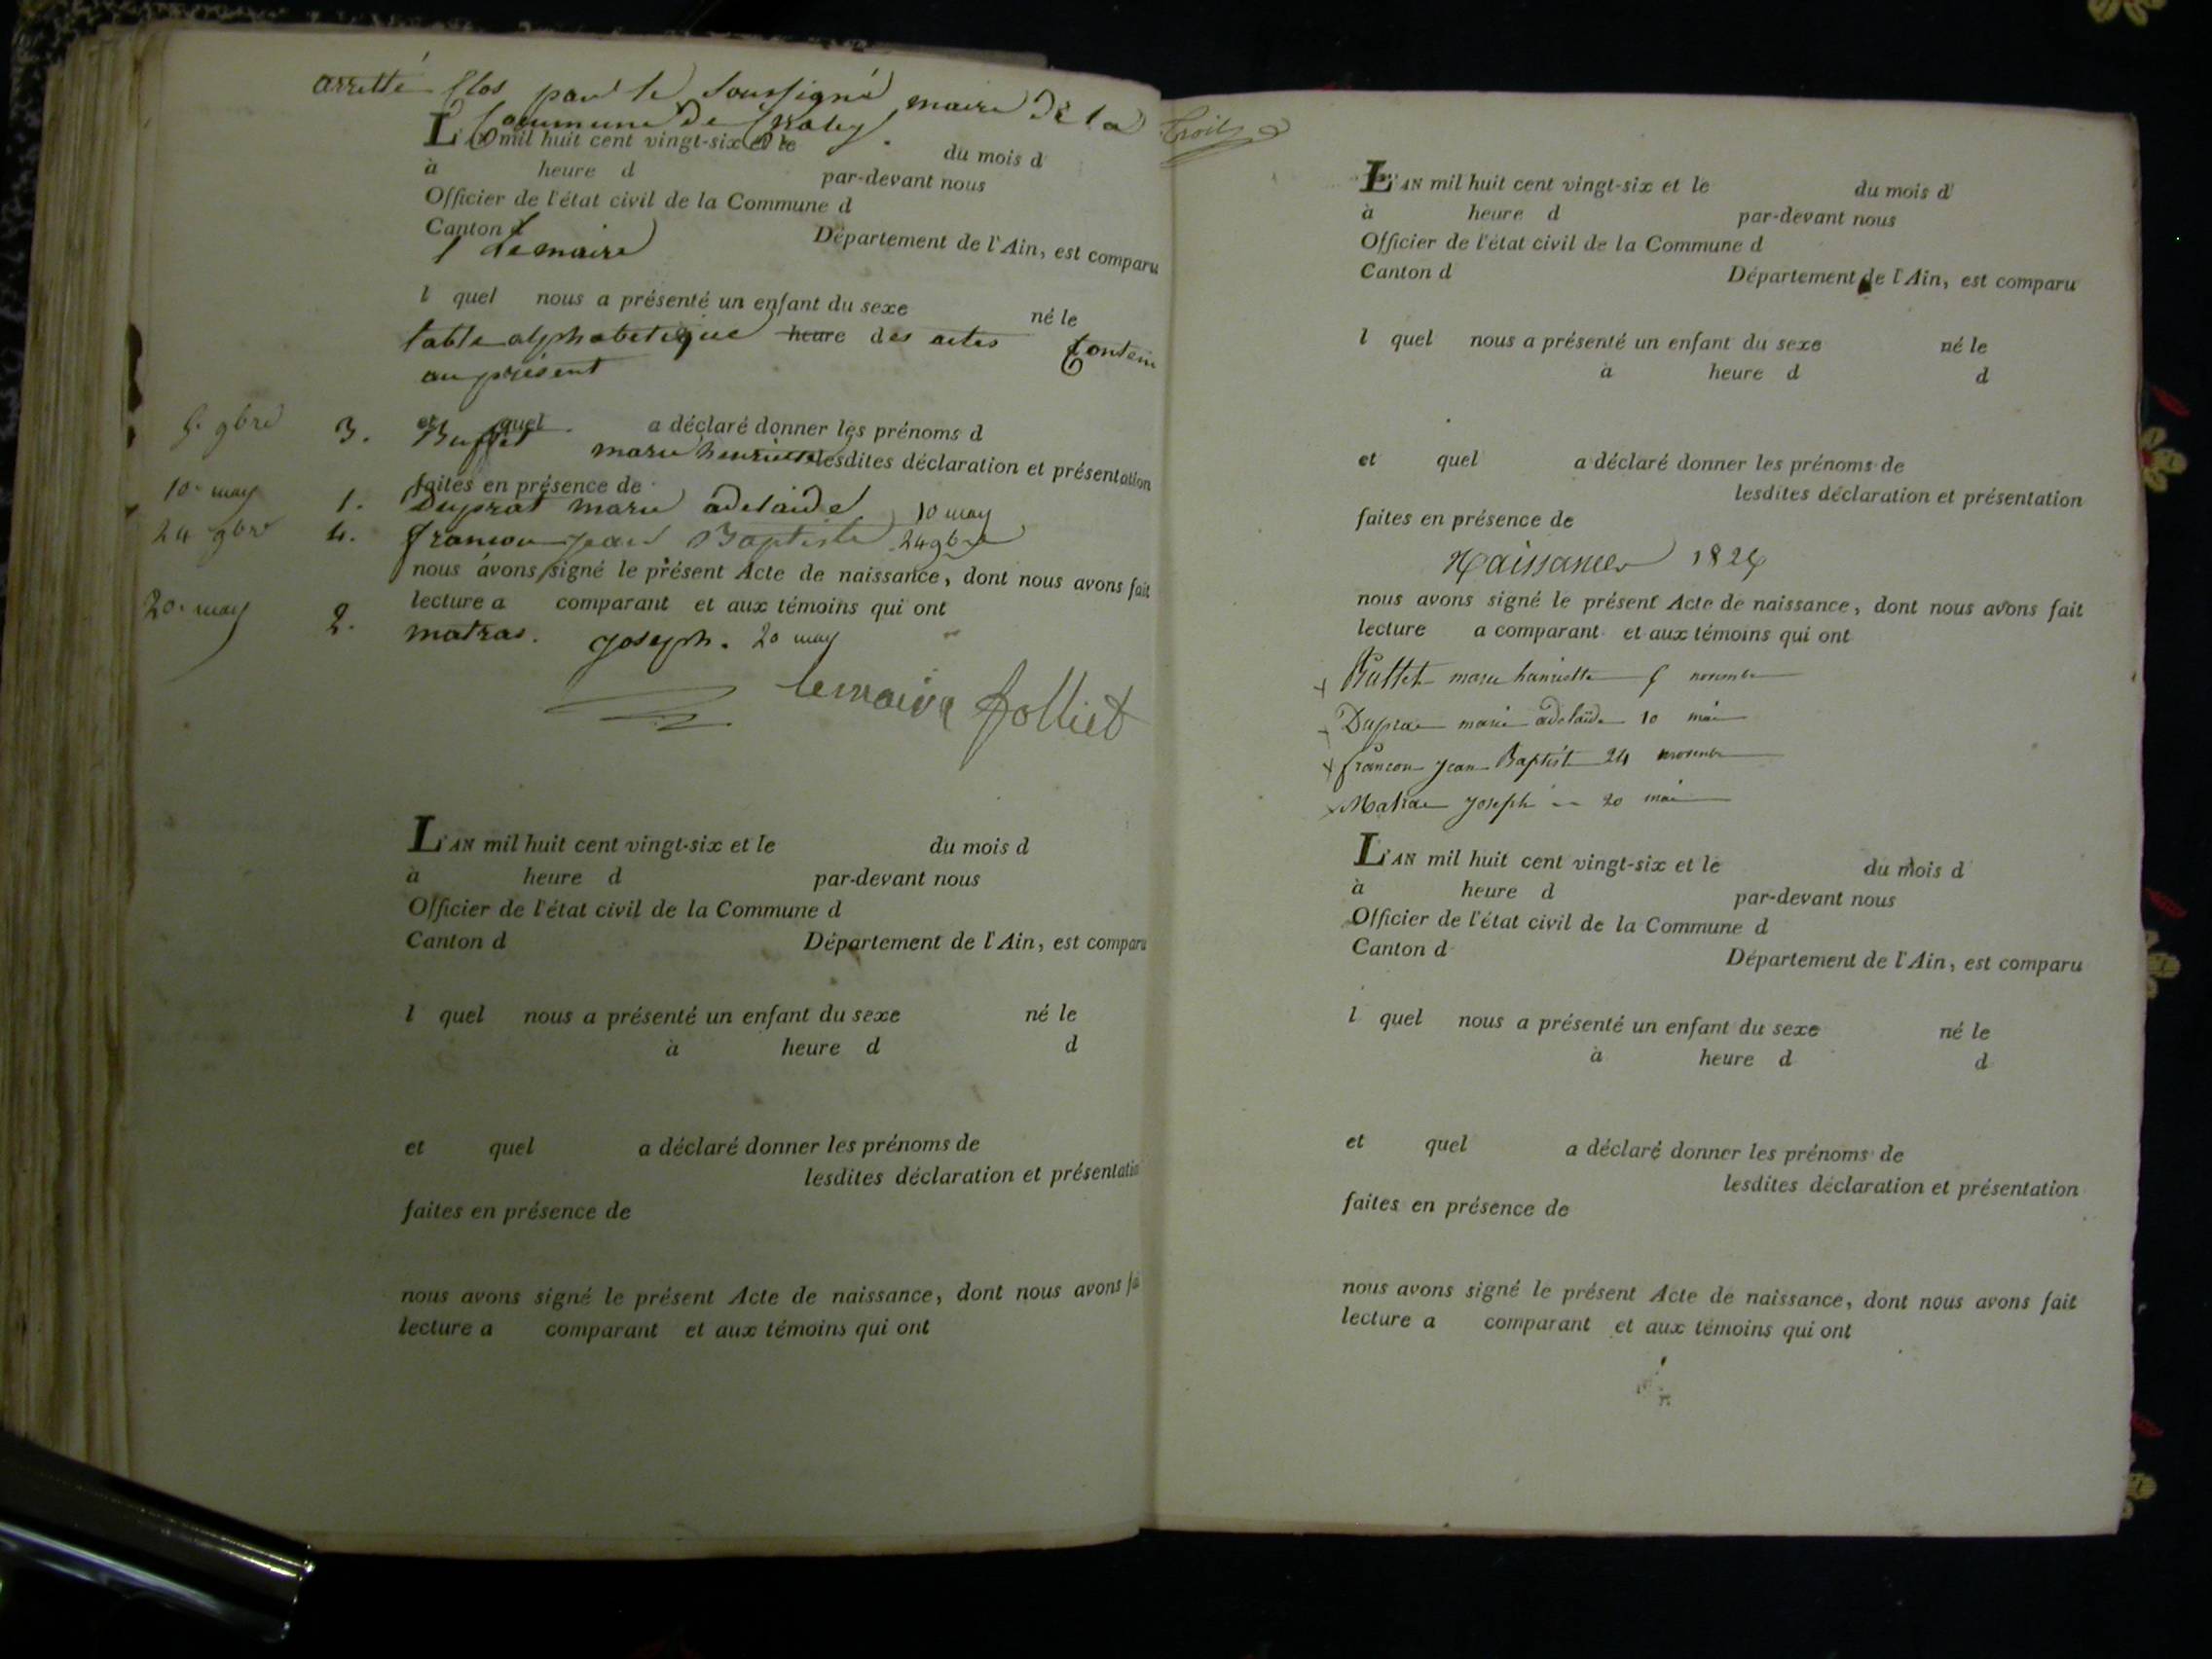 arretté Clos par le Soussigné maire de la
Commune de
L'AN mil huit cent vingt-six et le du mois d
à heure d par-devant nous
Officier de l'état civil de la Commune d
Canton d Département de l'Ain, est comparu
le maire
l quel nous a présenté un enfant du sexe né le
table alphabetique heure des actes Contenu
au présent
et quel a déclaré donner les prénoms d
5. 9bre 3. Buffet marie henriette lesdites déclaration et présentation
faites en présence de
10. may 1. Duprat marie adelaide 10 may
24 9bre 4. francon jean Baptiste 24 9bre
nous avons signé le présent Acte de naissance, dont nous avons fait
lecture a comparant et aux témoins qui ont
20. may 2. matras. joseph. 20 may
lemaire folliet
L'AN mil huit cent vingt-six et le du mois d
à heure d par-devant nous
Officier de l'état civil de la Commune d
Canton d Département de l'Ain, est comparu
l quel nous a présenté un enfant du sexe né le
à heure d d
et quel a déclaré donner les prénoms de
lesdites déclaration et présentatio
faites en présence de
nous avons signé le présent Acte de naissance, dont nous avons fa
lecture a comparant et aux témoins qui ont
L'AN mil huit cent vingt-six et le du mois d
à heure d par-devant nous
Officier de l'état civil de la Commune d
Canton d Département de l'Ain, est comparu
l quel nous a présenté un enfant du sexe né le
à heure d d
et quel a déclaré donner les prénoms de
lesdites déclaration et présentation
faites en présence de
Naissances 1826
nous avons signé le présent Acte de naissance, dont nous avons fait
lecture a comparant et aux témoins qui ont
Buffet marie henriette 5 novembre
Duprat marie adelaïde 10 mai
francon jean Baptist 24 novembre
Matras joseph 20 mai
L'AN mil huit cent vingt-six et le du mois d
à heure d par-devant nous
Officier de l'état civil de la Commune d
Canton d Département de l'Ain, est comparu
l quel nous a présenté un enfant du sexe né le
à heure d d
et quel a déclaré donner les prénoms de
lesdites déclaration et présentation
faites en présence de
nous avons signé le présent Acte de naissance, dont nous avons fait
lecture a comparant et aux témoins qui ont